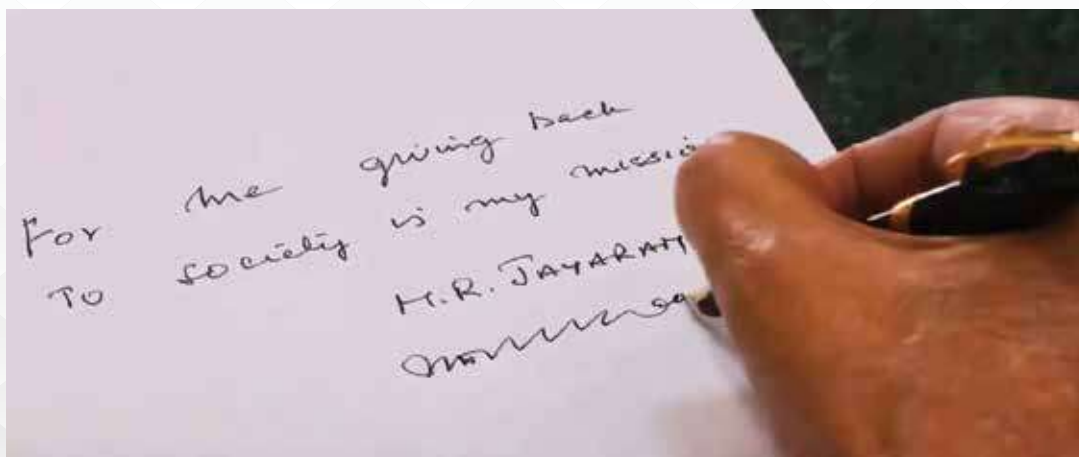 For me giving back
To society is my missio
M.R. JAYARAM